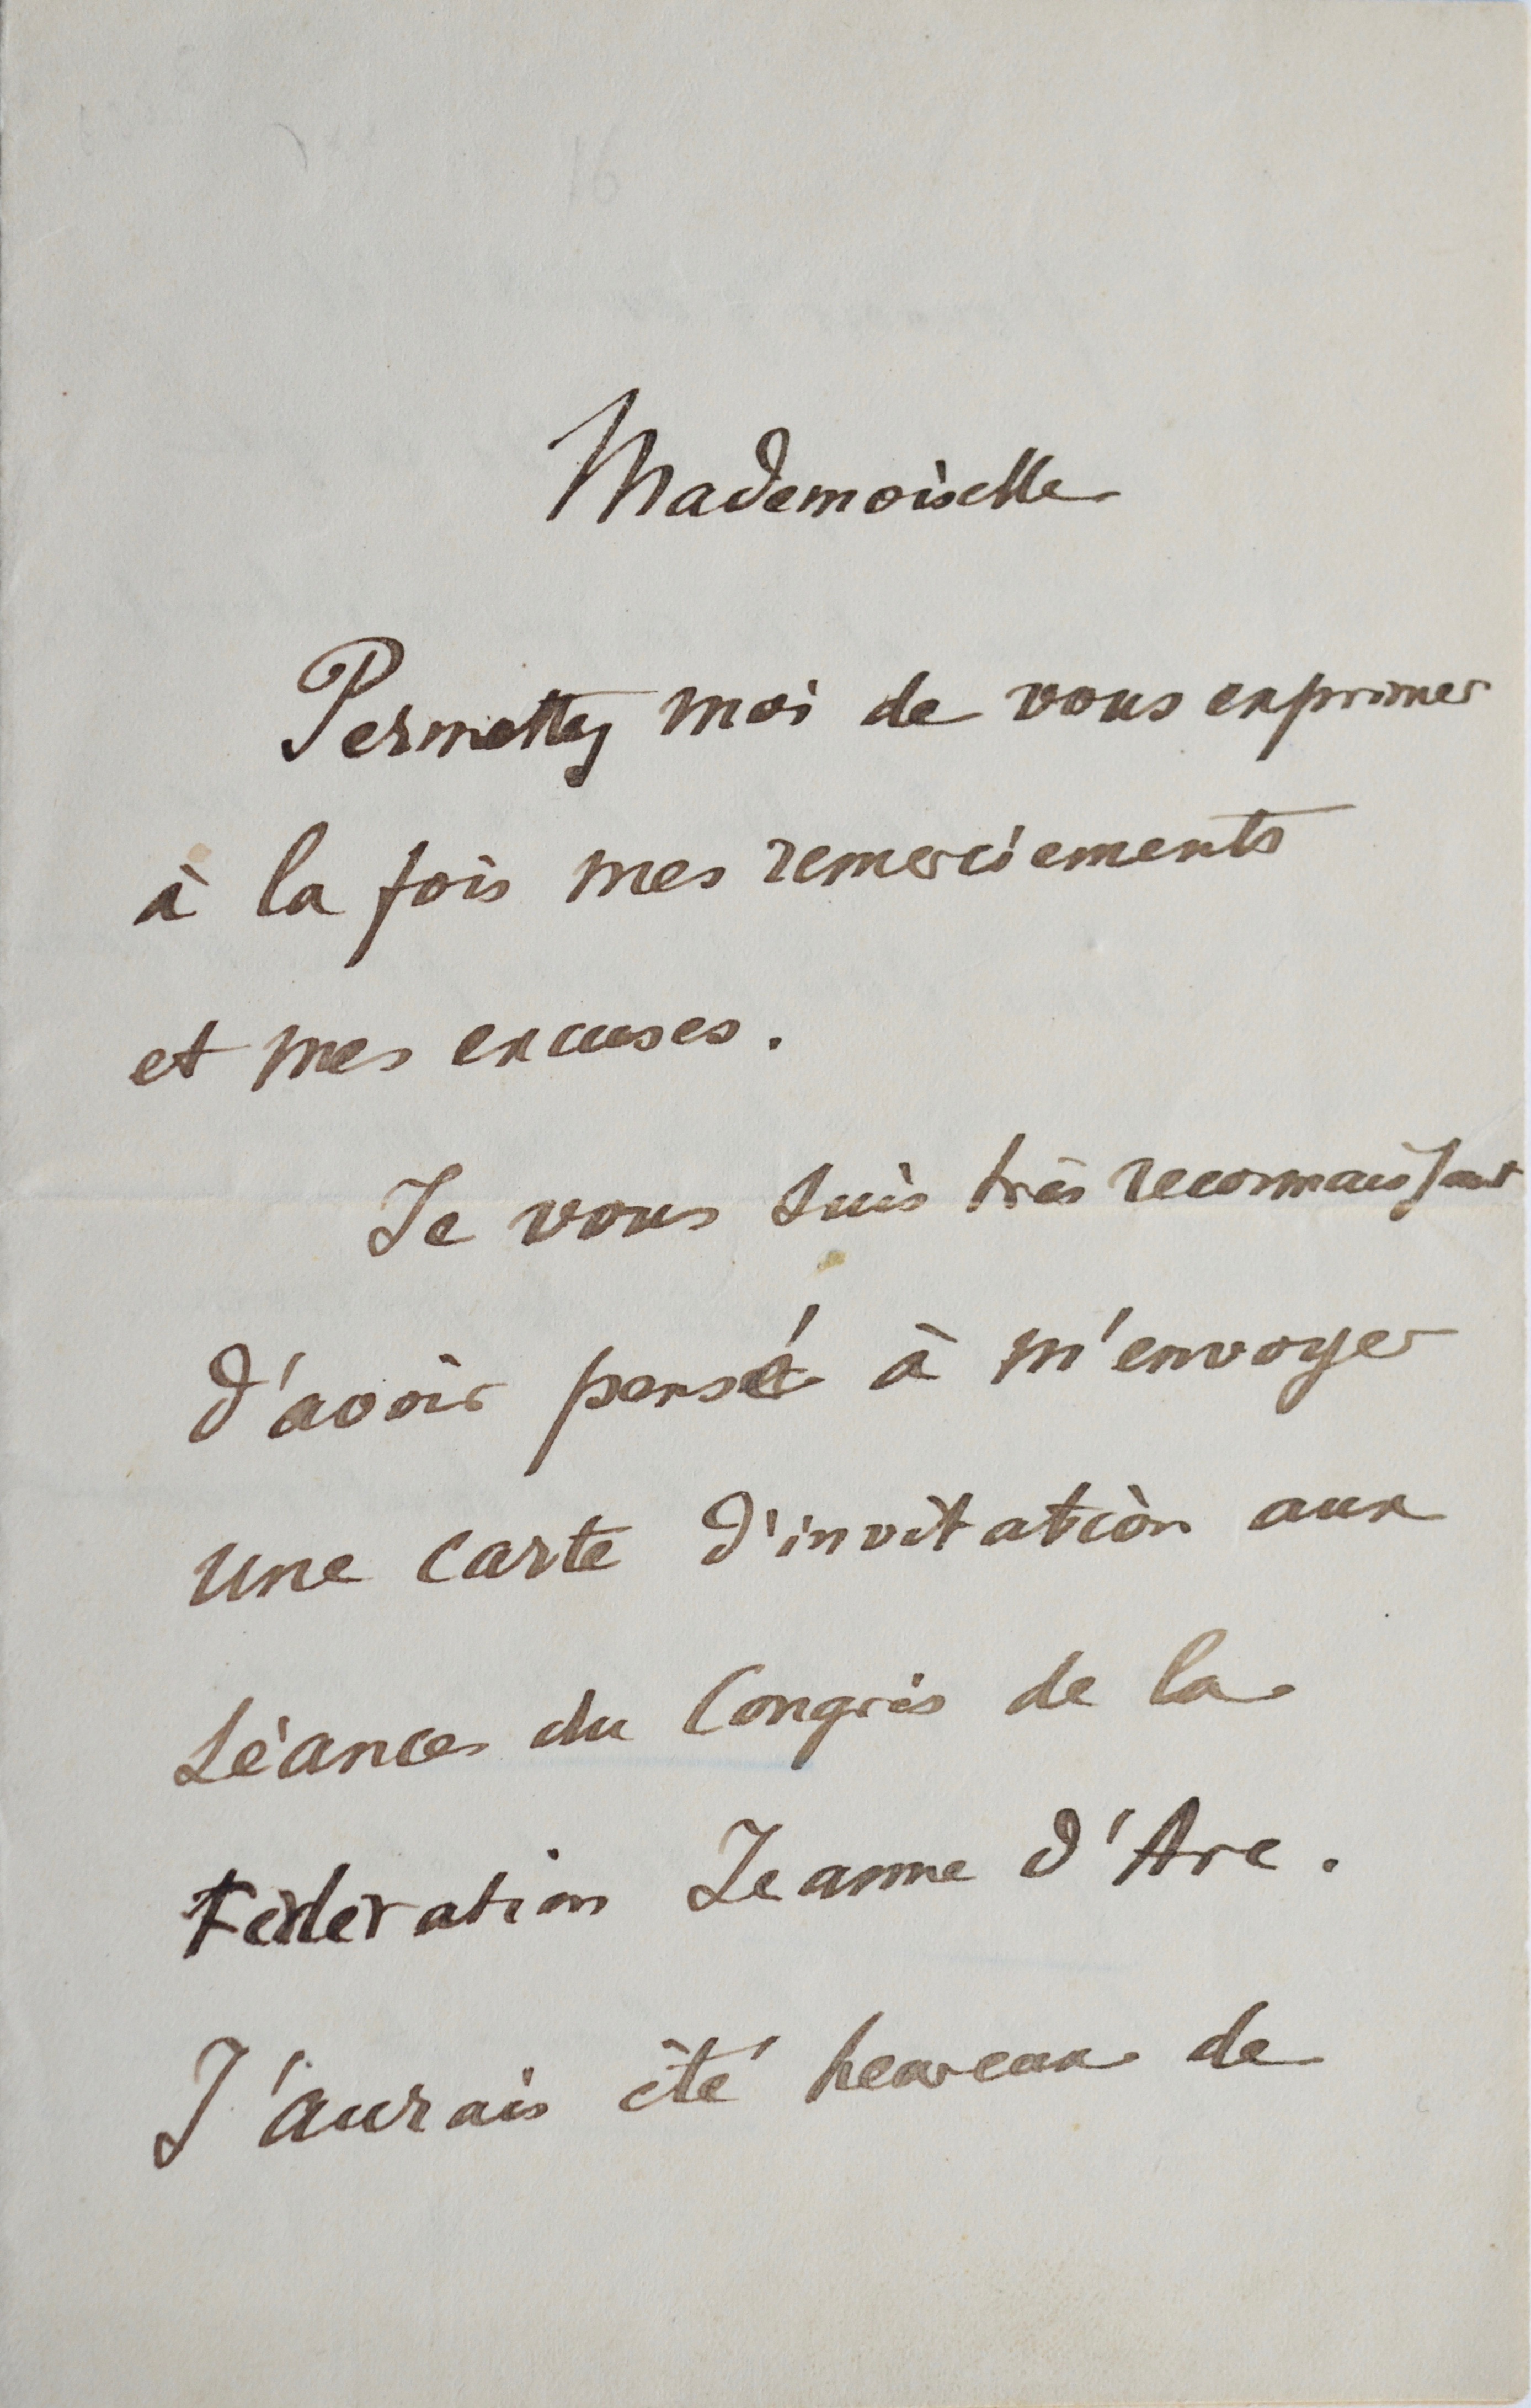 Mademoiselle
Permettez moi de vous exprimer
à la fois mes remerciements
et mes excuses.
Je vous suis très reconnaissant
d'avoir pensé à m'envoyer
une carte d'invitation aux
séances du Congrès de la
Fédération Jeanne d'Arc.
J'aurais été heureux de